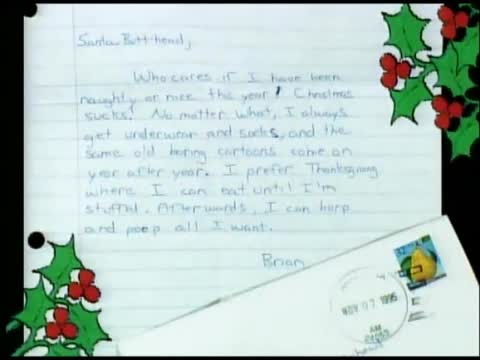 Santa Butt-head,
Who cares if I have been
naughty or nice this year! Christmas
sucks! No matter what, I always
get underwear and socks, and the
same old boring cartoons come on
year after year. I prefer Thanksgiving
where I can eat until I'm
stuffed. Afterwards, I can burp
and poop all I want.
Brian
32
NOV 07 1995
AM